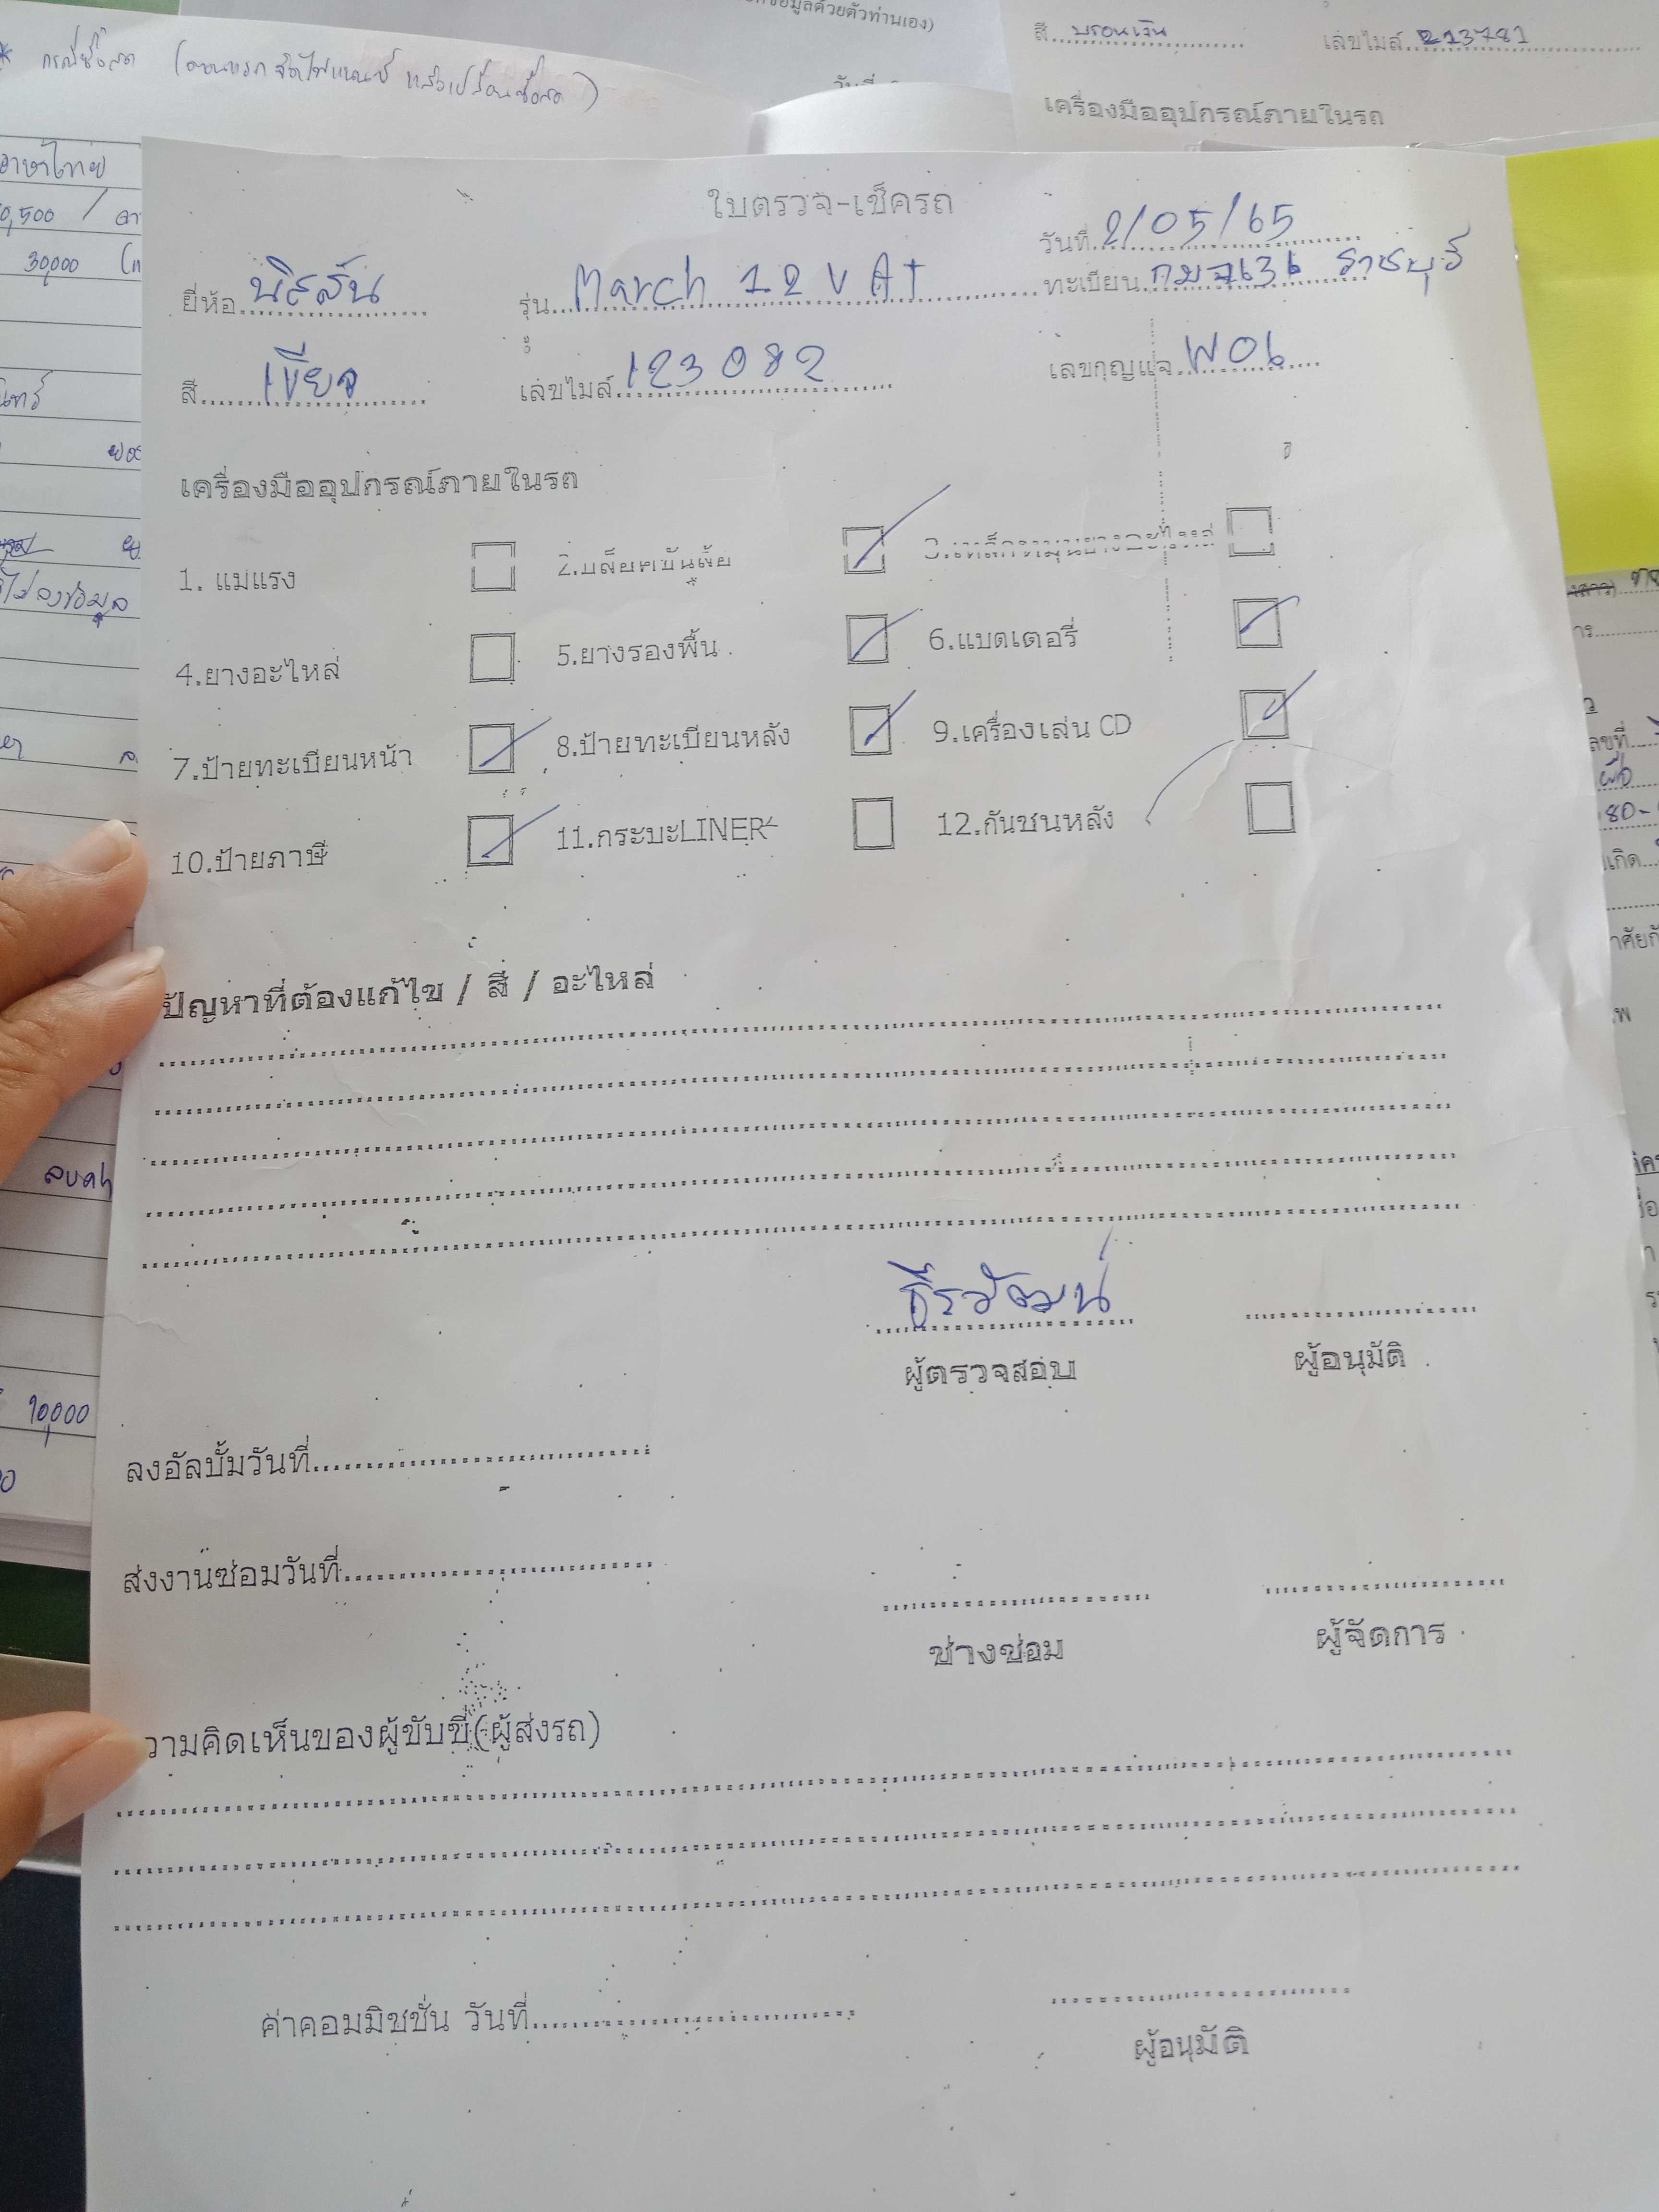 ข้อมูลด้วยตัวท่านเอง)
สี บรอนเงิน เลขไมล์ 213781
เครื่องมืออุปกรณ์ภายในรถ
ใบตรวจ-เช็ครถ
วันที่ 2/05/65
ยี่ห้อ นิสสัน รุ่น March 1.2 V AT ทะเบียน ราชบุรี
สี เขียว เลขไมล์ 123082 เลขกุญแจ W06
เครื่องมืออุปกรณ์ภายในรถ
1. แม่แรง 2.บล็อคขันล้อ
4.ยางอะไหล่ 5.ยางรองพื้น 6.แบตเตอรี่
7.ป้ายทะเบียนหน้า 8.ป้ายทะเบียนหลัง 9.เครื่องเล่น CD
10.ป้ายภาษี 11.กระบะLINER 12.กันชนหลัง
ปัญหาที่ต้องแก้ไข / สี / อะไหล่
ธีรวัฒน์
ผู้ตรวจสอบ ผู้อนุมัติ
ลงอัลบั้มวันที่
ส่งงานซ่อมวันที่
ช่างซ่อม ผู้จัดการ
วามคิดเห็นของผู้ขับขี่(ผู้ส่งรถ)
ค่าคอมมิชชั่น วันที่
ผู้อนุมัติ
30,000
10,000